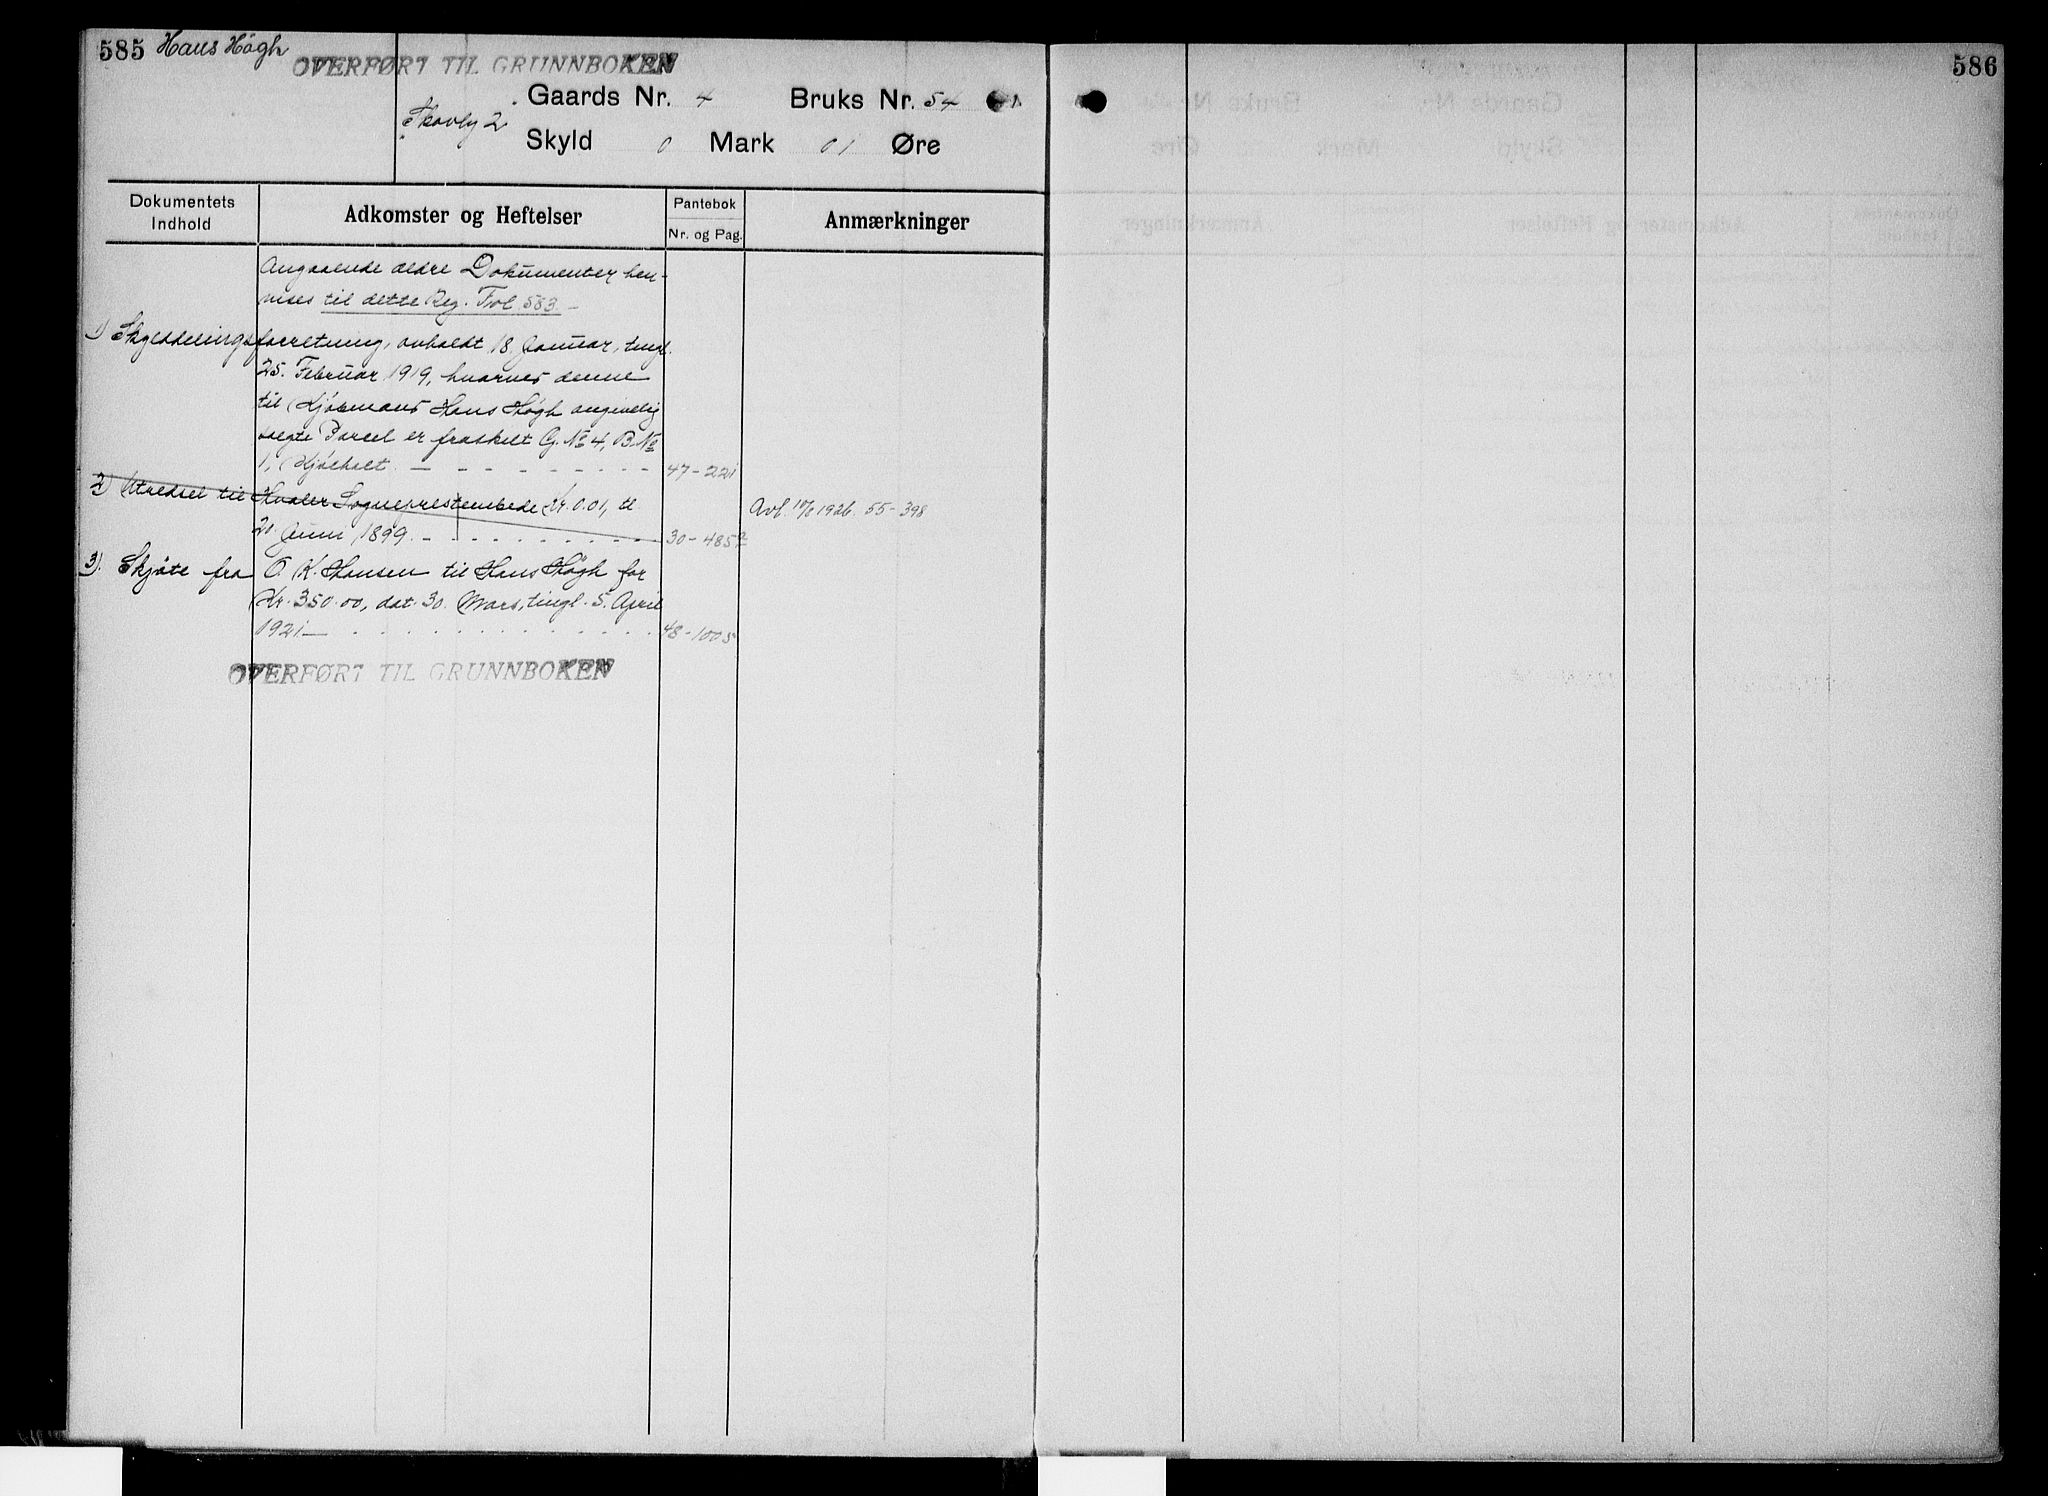 585 Hans Høgh
OVERFØRT TIL GRUNNBOKEN
Gaards Nr. 4 Bruks Nr. 54
Skovly 2
Skyld 0 Mark 01 Øre
586
Dokumentets Indhold
Adkomster og Heftelser
Pantebok
Nr. og Pag.
Anmærkninger
Angaaende ældre Dokumenter hen-
vises til dette Reg. Fol. 583.
1) Skylddelingsforretning, avholdt 18. Januar, tingl.
25. Februar 1919, hvorved denne
til Kjøbmand Hans Høgh angivelig
solgte Parcel er fraskilt G. No 4, B. No
1, 47-221
2) Utredsel til Hvaler Sogneprestembede Kr. 0.01, tl
20. Juni 1899. 30-485 Avl. 1926. 55-398
3). Skjøte fra O. K. Hansen til Hans Høgh for
Kr. 350.00, dat. 30. Mars, tingl. 5. April
1921 48-1005
OVERFØRT TIL GRUNNBOKEN